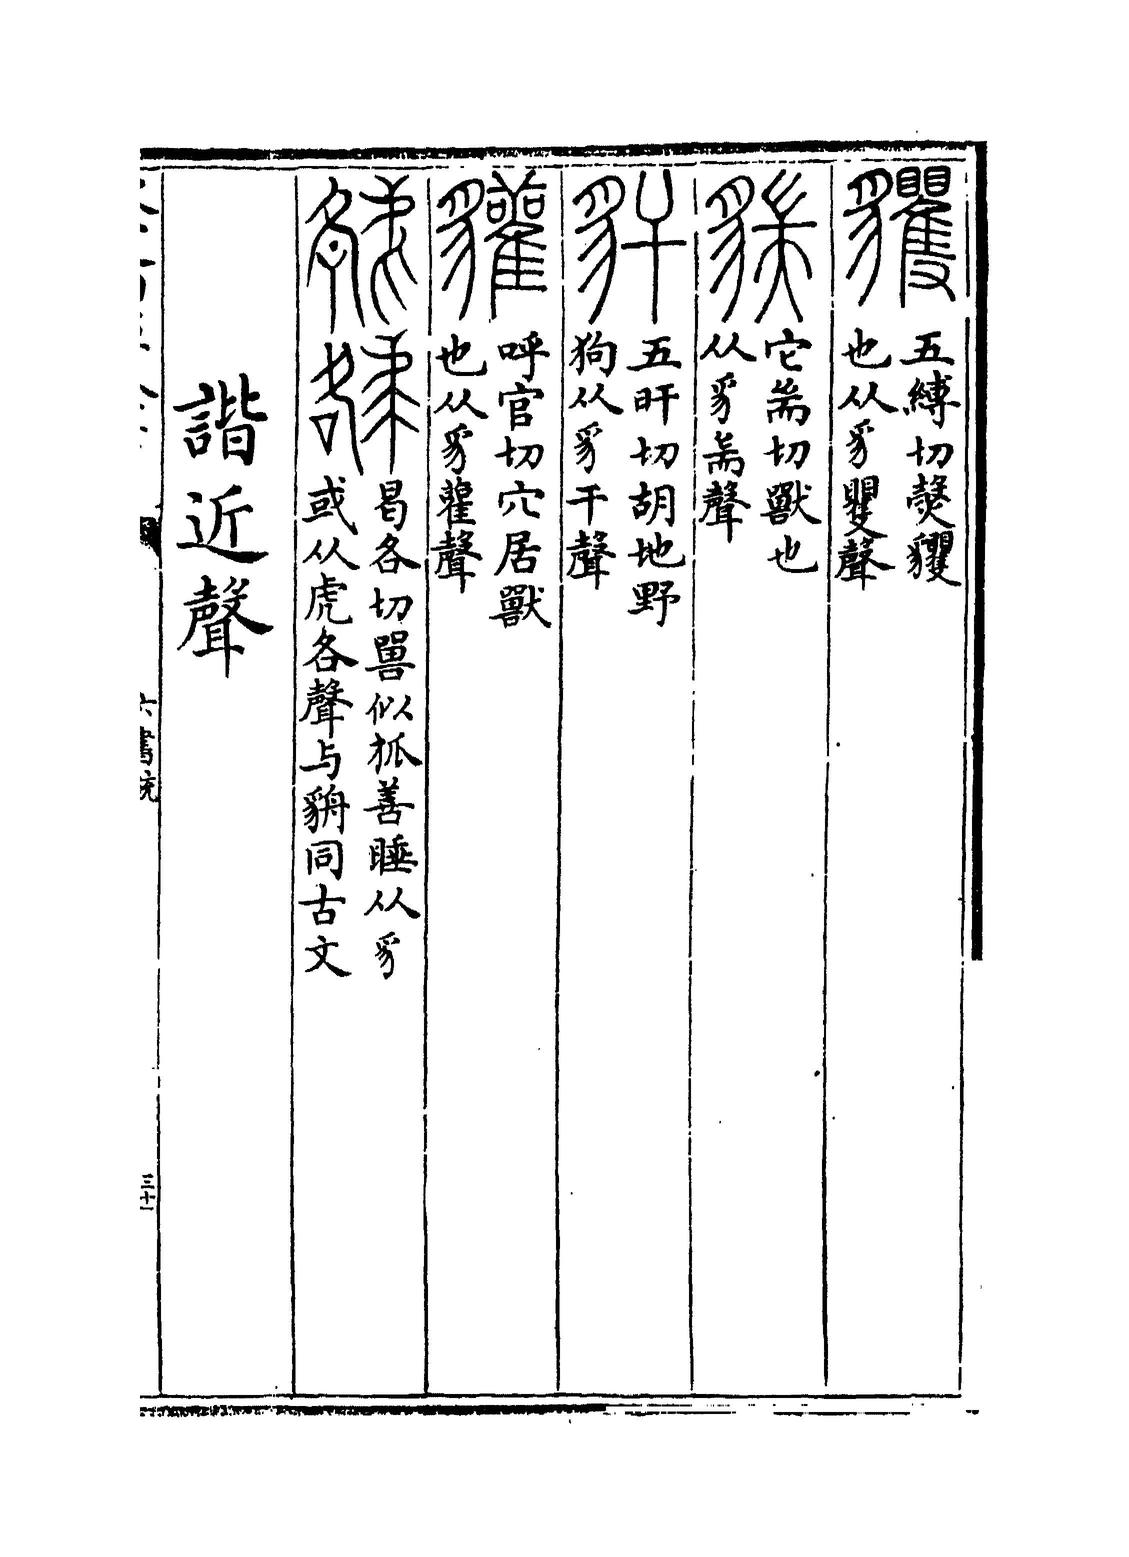 玃 五縛切㺉玃
也从豸矍聲
貒 它耑切獸也
从豸耑聲
豻 五旰切胡地野
狗从豸干聲
貛 呼官切穴居獸
也从豸雚聲
曷各切嘼似狐善睡从豸
或从虎各聲与貈同古文
諧近聲
六書統
三十一